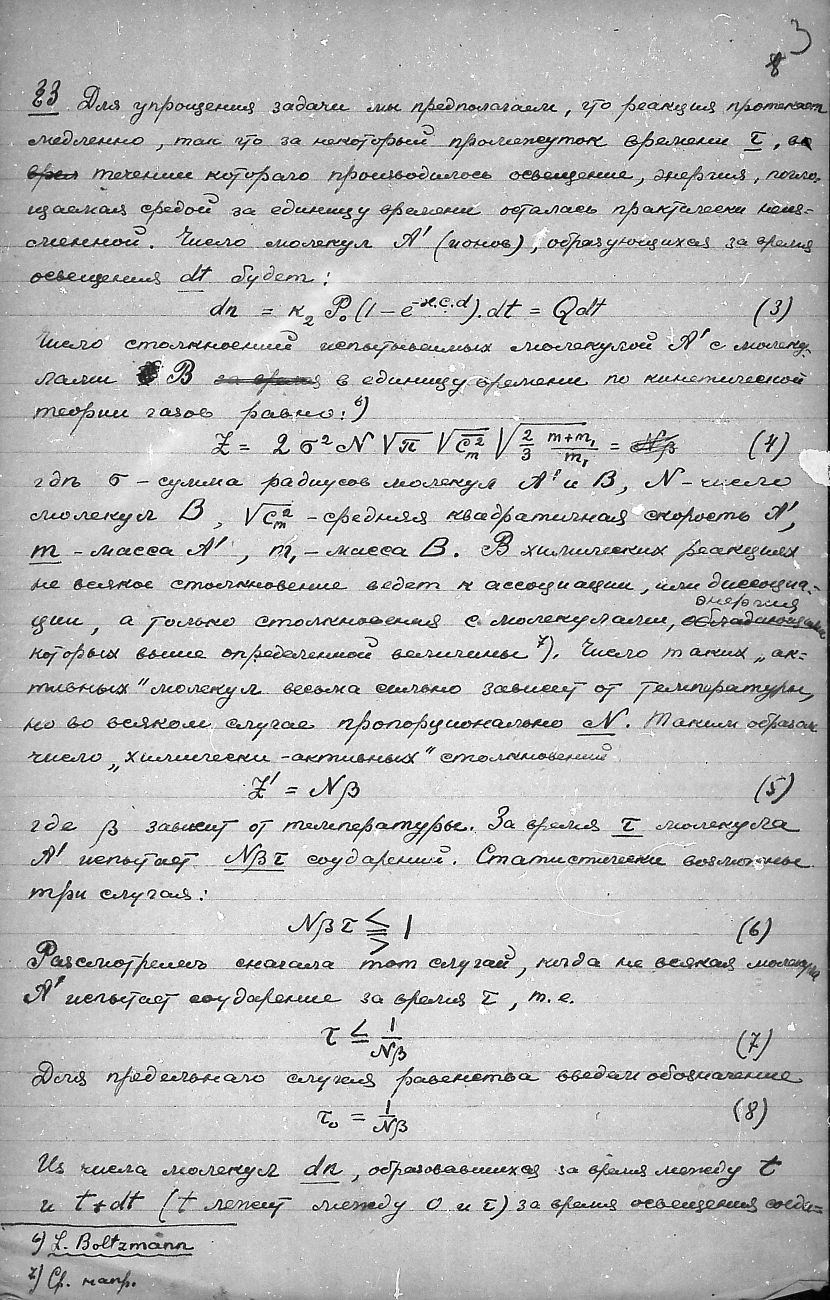 3
8
§3 Для упрощения задачи мы предполагаем, что реакция протекает
медленно, так что за некоторый промежуток времени τ, в
течении которого производилось освещение, энергия, погло-
щаемая средой за единицу времени осталась практически неиз-
менной. Число молекул A' (ионов), образующихся за время
освещения dt будет:
dn = κ₂ P₀ (1 − e^{-κ.c.d}).dt = Qdt (3)
Число столкновений испытываемых молекулой A' с молеку-
лами B в единицу времени по кинетической
теории газов равно: ⁶)
Z = 2 σ² N √π √C_m² √(2/3 (m+m₁)/m₁) = Nβ (4)
гдѣ σ – сумма радиусов молекул A' и B, N – число
молекул B, √C_m² – средняя квадратичная скорость A',
m – масса A', m₁ – масса B. В химических реакциях
не всякое столкновение ведет к ассоциации, или диссоциа-
ции, а только столкновения с молекулами, энергия
которых выше определенной величины ⁷). Число таких „ак-
тивных" молекул весьма сильно зависит от температуры,
но во всяком случае пропорционально N. Таким образом
число „химически-активных" столкновений
Z' = Nβ (5)
где β зависит от температуры. За время τ молекула
A' испытает Nβτ соударений. Статистически возможны
три случая:
Nβτ ⪋ 1 (6)
Разсмотрим сначала тот случай, когда не всякая молекула
A' испытает соударение за время τ, т.е.
τ ≤ 1/Nβ (7)
Для предельнаго случая равенства введем обозначение
τ₀ = 1/Nβ (8)
Из числа молекул dn, образовавшихся за время между t
и t+dt (t лежит между 0 и τ) за время освещения соеди-
⁶) L. Boltzmann
⁷) Ср. напр.